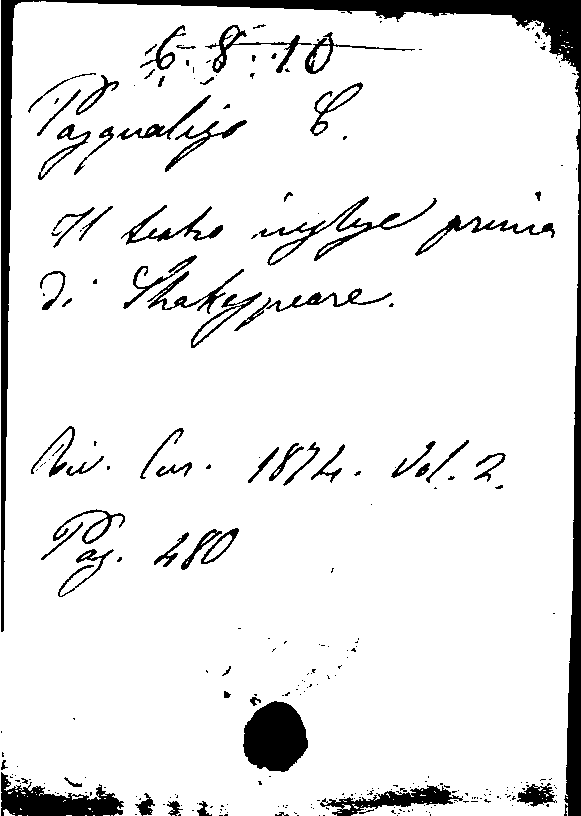 6. 8. 10
Pasqualigo C.
Il teatro inglese prima
di Shakespeare.
Riv. Eur. 1874. Vol. 2.
Pag. 480